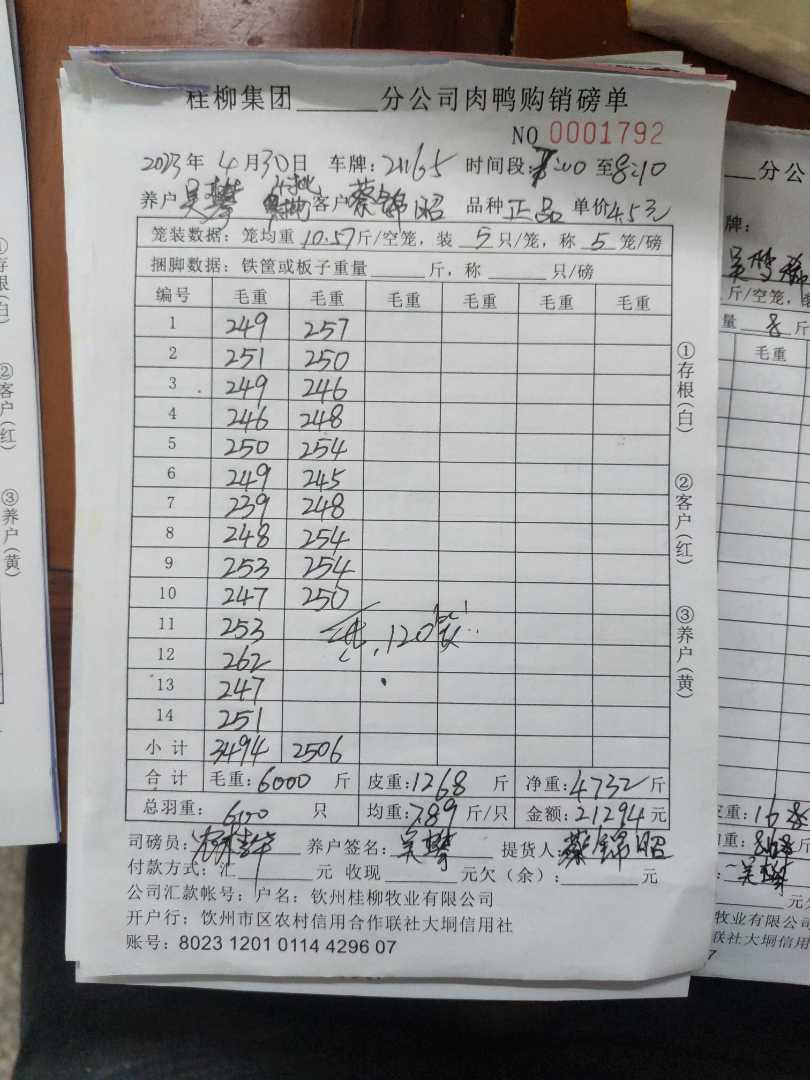 桂柳集团______分公司肉鸭购销磅单
NO 0001792
2023年4月30日 车牌:21165 时间段: 至8:10
养户 吴攀 客户 蔡锦昭 品种 正品 单价 4.5元
笼装数据: 笼均重 10.57 斤/空笼, 装 5 只/笼, 称 5 笼/磅
捆脚数据: 铁筐或板子重量______斤, 称______只/磅
编号 毛重 毛重 毛重 毛重 毛重 毛重
1 249 257
2 251 250
3 249 246
4 246 248
5 250 254
6 249 245
7 239 248
8 248 254
9 253 254
10 247 250
11 253
120
12 262
13 247
14 251
小计 3494 2506
合计 毛重:6000 斤 皮重:1268 斤 净重:4732斤
总羽重: 600 只 均重:7.89 斤/只 金额:21294元
司磅员: 养户签名: 吴攀 提货人: 蔡锦昭
付款方式: 汇______元 收现______元欠(余):______元
公司汇款帐号: 户名: 钦州桂柳牧业有限公司
开户行: 饮州市区农村信用合作联社大垌信用社
账号: 8023 1201 0114 4296 07
①存根(白)
②客户(红)
③养户(黄)
①存根(白)
②客户(红)
③养户(黄)
分公
牌:
斤/空笼,
量 8 斤
毛重
重: 168
吴攀
元欠
牧业有限公司
联社大垌信用
7